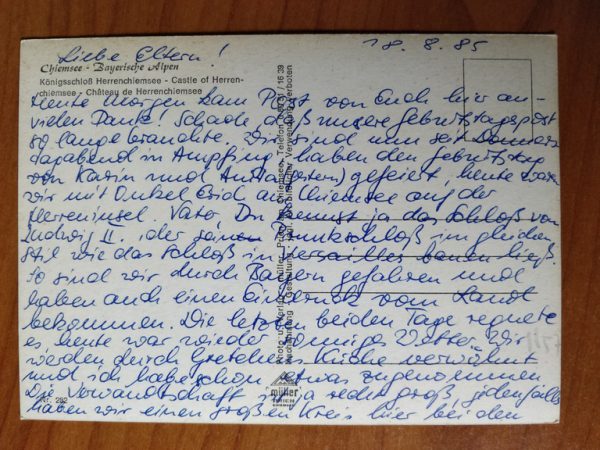 Liebe Eltern!
18. 8. 85
Chiemsee - Bayerische Alpen
Königsschloß Herrenchiemsee - Castle of Herren-
chiemsee - Château de Herrenchiemsee
Heute Morgen kam Post von Euch hier an-
vielen Dank! Schade, daß unsere Geburtstagspost
so lange brauchte. Wir sind nun seit Donners
tagabend in Ampfing, haben den Geburtstag
von Karin und gefeiert, heute waren
wir mit Onkel am Chiemsee auf der
Herreninsel. Vater, Du kennst ja das Schloß von
Ludwig II. der seinen Prunkschloß im gleichen
Stil wie das Schloß in Versailles bauen ließ.
So sind wir durch Bayern gefahren und
haben auch einen Eindruck vom Land
bekommen. Die letzten beiden Tage regnete
es heute war wieder sonniges Wetter. Wir
werden durch Gretchens Küche verwöhnt
und ich habe schon etwas zugenommen
Die Verwandtschaft ist ja recht groß, jedenfalls
haben wir einen großen Kreis hier bei den
Nr. 292
müller